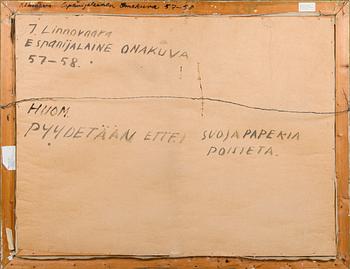 Espanjalainen Omakuva 57-58
J. Linnovaara
ESPANIJALAINE OMAKUVA
57-58.
HUOM.
PYYDETÄÄN ETTEI SUOJAPAPERIA
POISTETA.